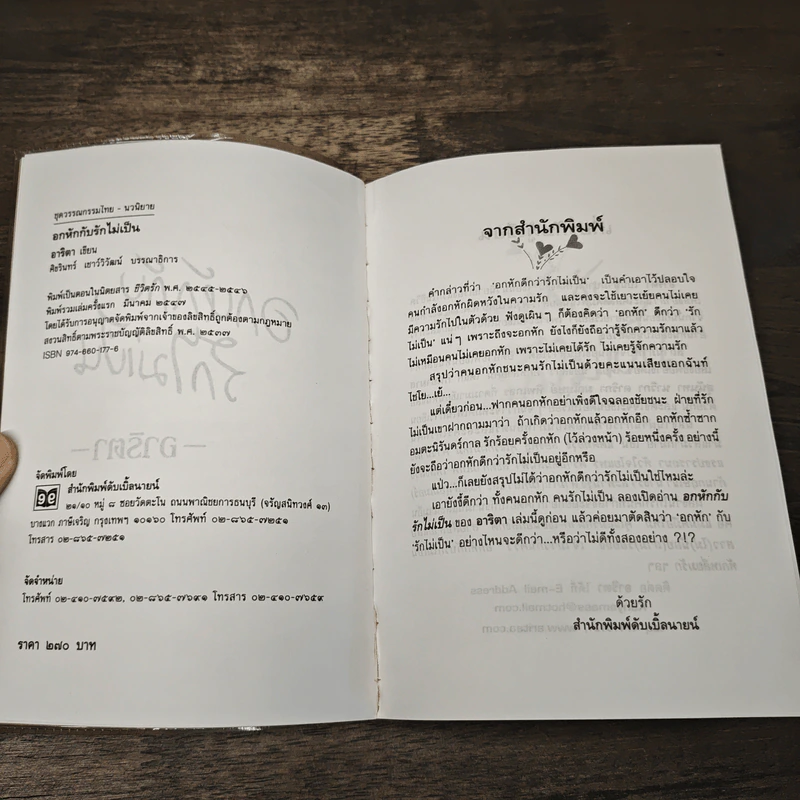 ชุดวรรณกรรมไทย - นวนิยาย
อกหักกับรักไม่เป็น
อาริตา เขียน
ศิขรินทร์ เชาว์วิวัฒน์ บรรณาธิการ
พิมพ์เป็นตอนในนิตยสาร ชีวิตรัก พ.ศ. ๒๕๔๕-๒๕๔๖
พิมพ์รวมเล่มครั้งแรก มีนาคม ๒๕๔๗
โดยได้รับการอนุญาตจัดพิมพ์จากเจ้าของลิขสิทธิ์ถูกต้องตามกฎหมาย
สงวนสิทธิ์ตามพระราชบัญญัติลิขสิทธิ์ พ.ศ. ๒๕๓๗
ISBN 974-660-177-6
จัดพิมพ์โดย
สำนักพิมพ์ดับเบิ้ลนายน์
๒๑/๑๐ หมู่ ๘ ซอยวัดตะโน ถนนพาณิชยการธนบุรี (จรัญสนิทวงศ์ ๑๓)
บางแวก ภาษีเจริญ กรุงเทพฯ ๑๐๑๖๐ โทรศัพท์ ๐๒-๘๖๕-๗๒๕๑
โทรสาร ๐๒-๘๖๕-๗๒๕๑
จัดจำหน่าย
โทรศัพท์ ๐๒-๔๑๐-๗๕๙๒, ๐๒-๘๖๕-๗๖๙๑ โทรสาร ๐๒-๔๑๐-๗๖๕๙
ราคา ๒๗๐ บาท
จากสำนักพิมพ์
คำกล่าวที่ว่า 'อกหักดีกว่ารักไม่เป็น' เป็นคำเอาไว้ปลอบใจ
คนกำลังอกหักผิดหวังในความรัก และคงจะใช้เยาะเย้ยคนไม่เคย
มีความรักไปในตัวด้วย ฟังดูเผินๆ ก็ต้องคิดว่า 'อกหัก' ดีกว่า 'รัก
ไม่เป็น' แน่ๆ เพราะถึงจะอกหัก ยังไงก็ยังถือว่ารู้จักความรักมาแล้ว
ไม่เหมือนคนไม่เคยอกหัก เพราะไม่เคยได้รัก ไม่เคยรู้จักความรัก
สรุปว่าคนอกหักชนะคนรักไม่เป็นด้วยคะแนนเสียงเอกฉันท์
ไชโย...เย้...
แต่เดี๋ยวก่อน...ฟากคนอกหักอย่าเพิ่งดีใจฉลองชัยชนะ ฝ่ายที่รัก
ไม่เป็นเขาฝากถามมาว่า ถ้าเกิดว่าอกหักแล้วอกหักอีก อกหักซ้ำซาก
อมตะนิรันดร์กาล รักร้อยครั้งอกหัก (ไว้ล่วงหน้า) ร้อยหนึ่งครั้ง อย่างนี้
ยังจะถือว่าอกหักดีกว่ารักไม่เป็นอยู่อีกหรือ
แป่ว...ก็เลยยังสรุปไม่ได้ว่าอกหักดีกว่ารักไม่เป็นใช่ไหมล่ะ
เอายังงี้ดีกว่า ทั้งคนอกหัก คนรักไม่เป็น ลองเปิดอ่าน อกหักกับ
รักไม่เป็น ของ อาริตา เล่มนี้ดูก่อน แล้วค่อยมาตัดสินว่า 'อกหัก' กับ
'รักไม่เป็น' อย่างไหนจะดีกว่า...หรือว่าไม่ดีทั้งสองอย่าง ?!?
ด้วยรัก
สำนักพิมพ์ดับเบิ้ลนายน์